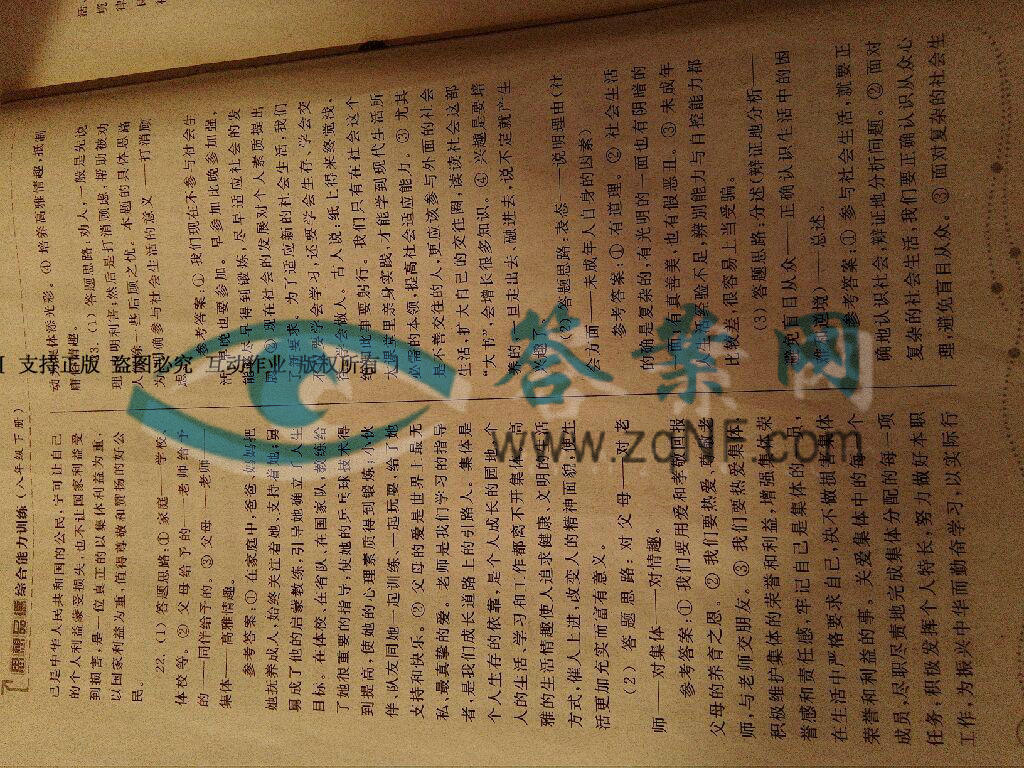 思想品德综合能力训练(八年级下册)
己是中华人民共和国的公民,宁可让自己
的个人利益蒙受损失,也不让国家利益受
到损害,是一位真正的以集体利益为重,
以国家利益为重,值得尊敬和赞扬的好公
民。
22. (1)答题思路:①家庭——学校、
体校等。②父母给予的——老师给予
的——同伴给予的。③父母——老师——
集体——高雅情趣。
参考答案:①在家庭中,爸爸、妈妈把
她抚养成人,始终关注着她、支持着她;舅
舅成了他的启蒙教练,引导她确立了人生
目标。在体校、在省队、在国家队,教练给
了她很重要的指导,使她的乒乓球技术得
到提高,使她的心理素质得到锻炼,小伙
伴、队友同她一起训练、一起玩耍,给了她
支持和快乐。②父母的爱是世界上最无
私、最真挚的爱。老师是我们学习的指导
者,是我们成长道路上的引路人。集体是
个人生存的依靠,是个人成长的园地,个
人的生活、学习和工作都离不开集体。高
雅的生活情趣使人追求健康、文明的生活
方式,催人上进,改变人的精神面貌,使生
活更加充实而富有意义。
(2)答题思路:对父母——对老
师——对集体——对情趣。
参考答案:①我们要用爱和孝敬回报
父母的养育之恩。②我们要热爱、尊敬老
师,与老师交朋友。③我们要热爱集体,
积极维护集体的荣誉和利益,增强集体荣
誉感和责任感,牢记自己是集体的一员,
在生活中严格要求自己,决不做损害集体
荣誉和利益的事。关爱集体中的每一个
成员,尽职尽责地完成集体分配的每一项
任务,积极发挥个人特长,努力做好本职
工作,为振兴中华而勤奋学习,以实际行
动为集体添光彩。④培养高雅情趣,抵制
庸俗情趣。
23. (1)答题思路:劝人,一般是先说
理,讲明利害;然后是打消顾虑,帮助被劝
人解除一些后顾之忧。本题的具体思路
为:明确参与社会生活的意义——打消顾
虑。
参考答案:①我们现在不参与社会生
活,早晚也要参加。早参加比晚参加强,
能尽早得到锻炼,尽早适应社会的发
展。②现在社会的发展对个人素质提出
了新要求。为了适应新的社会生活,我们
不仅要学会学习,还要学会生存、学会交
往、学会做人。古人说:纸上得来终觉浅,
绝知此事要躬行。我们只有在社会这个
大课堂里亲身实践,才能学到现代生活所
必需的本领,提高社会适应能力。③尤其
是不善交往的人,更应该参与外面的社会
生活,扩大自己的交往圈,读读社会这部
“大书”,会增长很多知识。④兴趣是要培
养的,一旦走出去,融进去,说不定就产生
兴趣了。
(2)答题思路:表态——说明理由(社
会方面——未成年人自身的因素)
参考答案:①有道理。②社会生活
的确是复杂的,有光明的一面也有阴暗的
一面;有真善美,也有假恶丑。③未成年
人生活经验不足,辨别能力与自控能力都
比较差,很容易上当受骗。
(3)答题思路:分述(辩证地分析——
避免盲目从众——正确认识生活中的困
难和逆境)——总述。
参考答案:①参与社会生活,就要正
确地认识社会,辩证地分析问题。②面对
复杂的社会生活,我们要正确认识从众心
理,避免盲目从众。③面对复杂的社会生
支持正版 盗图必究 互动作业 版权所有
答案网
www.zqNF.com